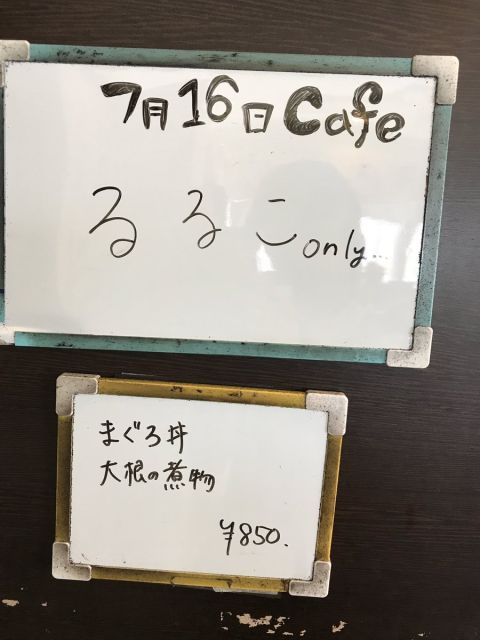 7月16日 Cafe
るるこ only...
まぐろ丼
大根の煮物
¥850.